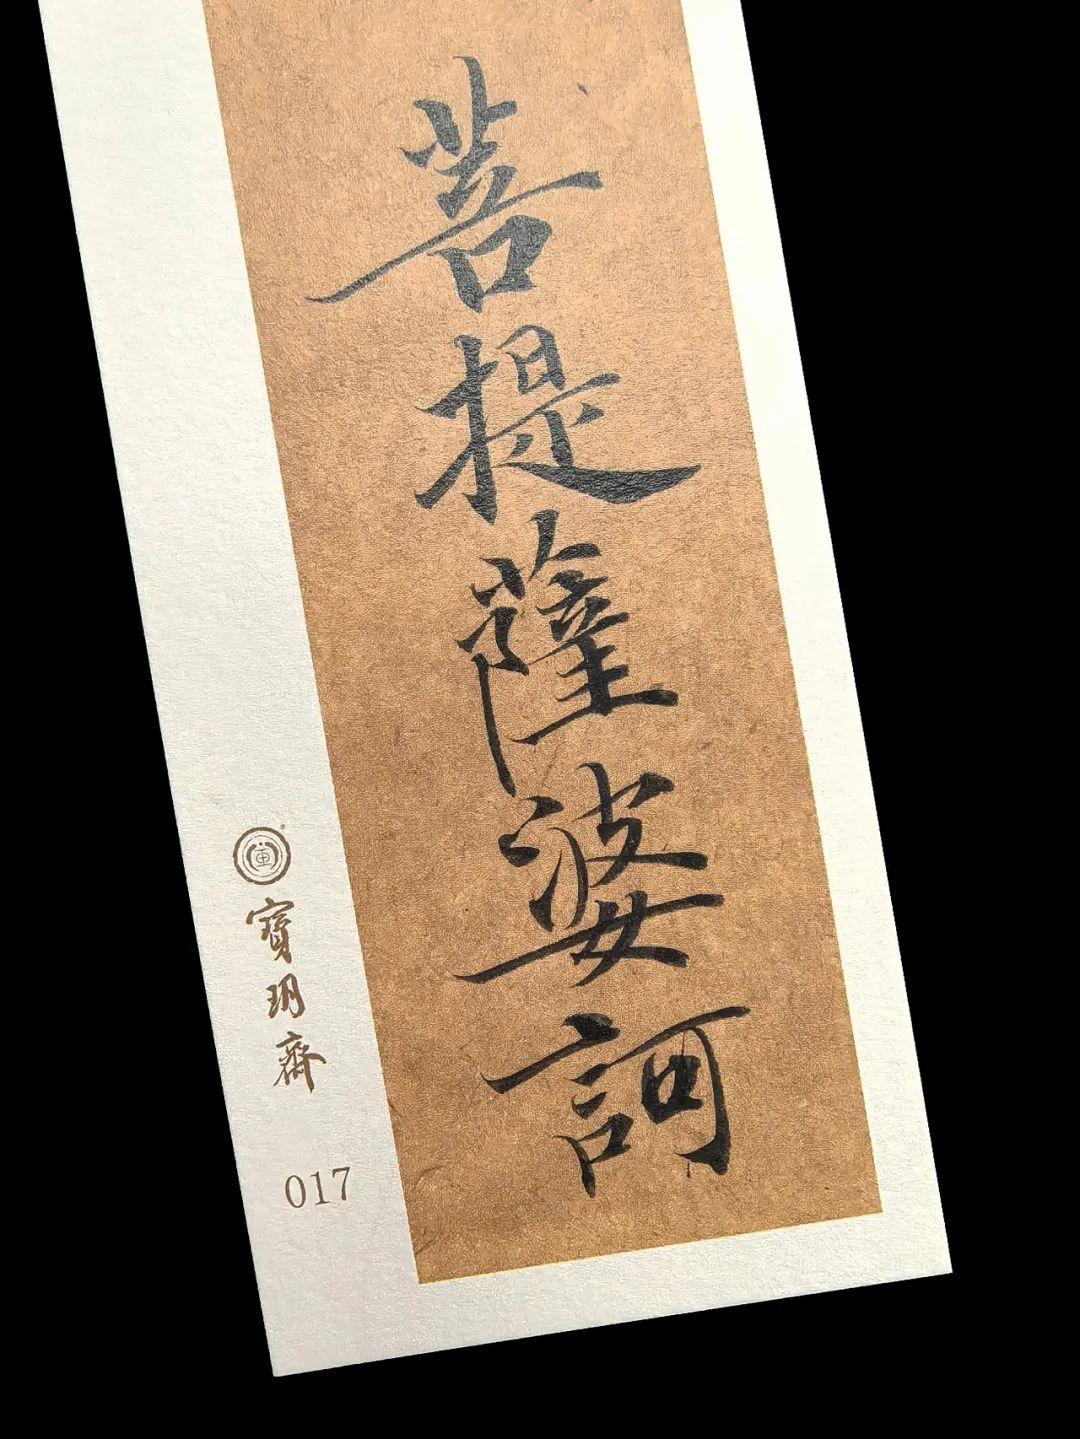 菩提薩婆訶
寶玥齋
017